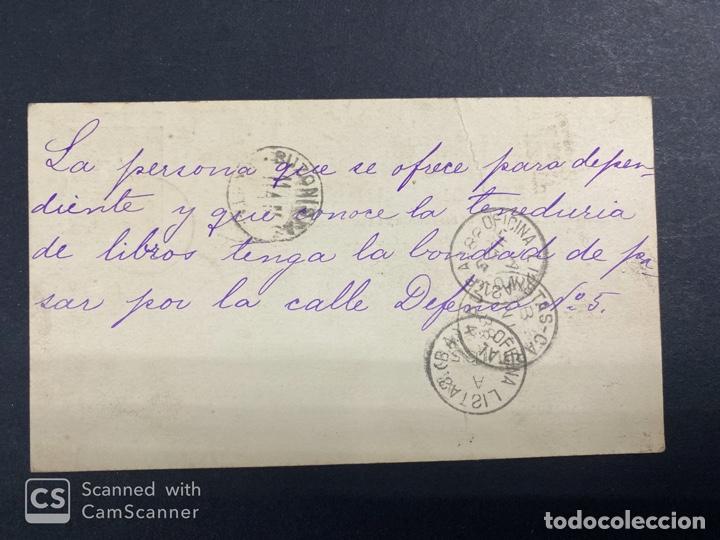 La persona que se ofrece para depen-
diente y que conoce la teneduria
de libros tenga la bondad de pa-
sar por la calle Defensa Nº 5.
OFICINA LISTAS
OFICINA LISTAS
CS Scanned with
CamScanner
todocoleccion